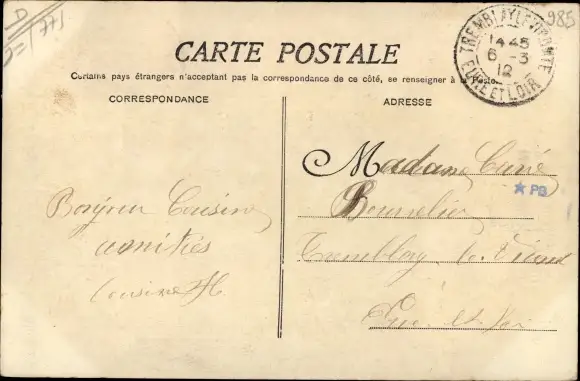 985
D
TREMBLAY-LE-VICOMTE
14 45
6 -3
12
EURE ET LOIR
CARTE POSTALE
Certains pays étrangers n'acceptant pas la correspondance de ce côté, se renseigner à la Poste.
CORRESPONDANCE
ADRESSE
Bonjour Cousine
amitiés
Cousine H
Madame
★ PB
Tremblay le Vicomte
Eure et Loir